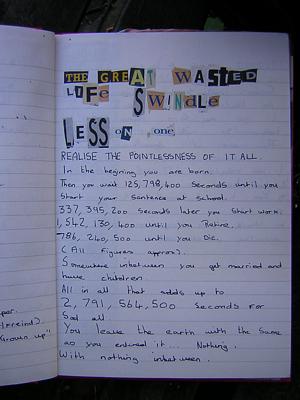 THE GREAT WASTED
LIFe SWiNdLe
LESS oN one
REALISE THE POINTLESSNESS OF IT ALL.
In the begining you are born.
Then you wait 125,798,400 Seconds until you
Start your sentence at school.
337,395,200 Seconds later you Start work.
1,542,130,400 until you Retire,
786,240,500 until you Die.
(All figures approx).
Somewhere inbetween you get married and
have children.
All in all that adds up to
2,791,564,500 Seconds for
Sod all.
You leave the earth with the Same
as you entered it... Nothing.
With nothing inbetween.
per.
Grown up"